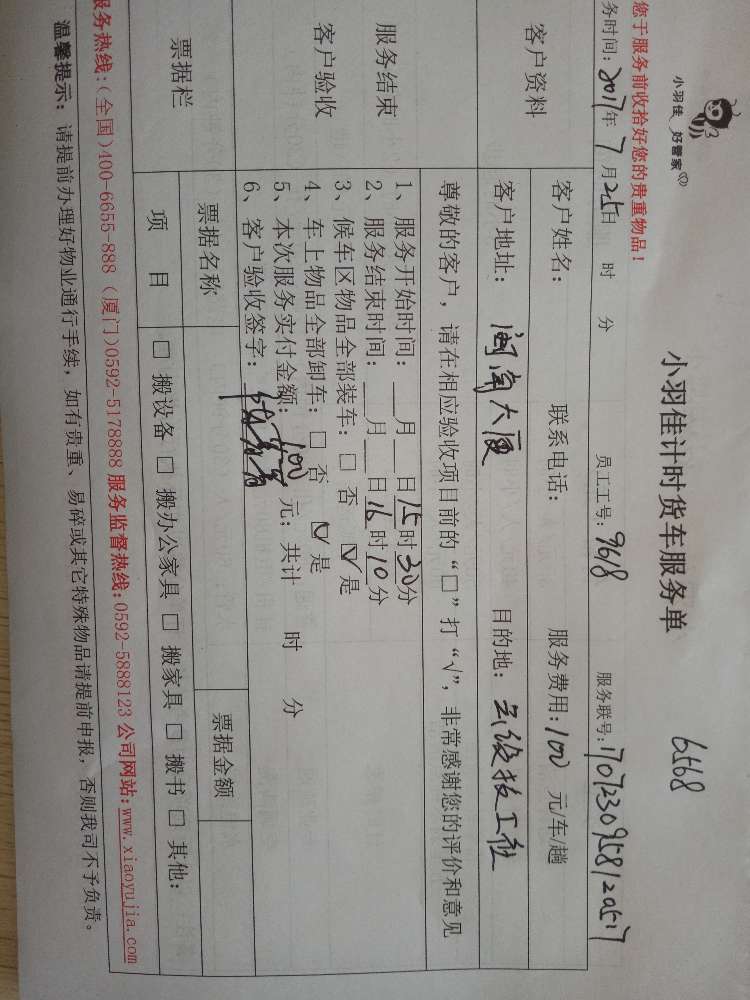 小羽佳 好管家
您于服务前收拾好您的贵重物品！
小羽佳计时货车服务单
6568
务时间：2017年 7 月25日 时 分 员工工号：9618 服务联号：
客户资料
客户姓名： 联系电话： 服务费用：100 元/车/趟
客户地址：闽南大厦 目的地：
服务结束
客户验收
尊敬的客户，请在相应验收项目前的“□”打“√”，非常感谢您的评价和意见
1、服务开始时间：___月___日15时30分
2、服务结束时间：___月___日16时10分
3、候车区物品全部装车：□ 否 ☑ 是
4、车上物品全部卸车：□ 否 ☑ 是
5、本次服务实付金额：100 元；共计 时 分
6、客户验收签字：
票据栏
票据名称 票据金额
项 目 □ 搬设备 □ 搬办公家具 □ 搬家具 □ 搬书 □ 其他：
服务热线：（全国）400-6655-888（厦门）0592-5178888 服务监督热线：0592-5888123 公司网站：www.xiaoyujia.com
温馨提示：请提前办理好物业通行手续，如有贵重、易碎或其它特殊物品请提前申报，否则我司不予负责。